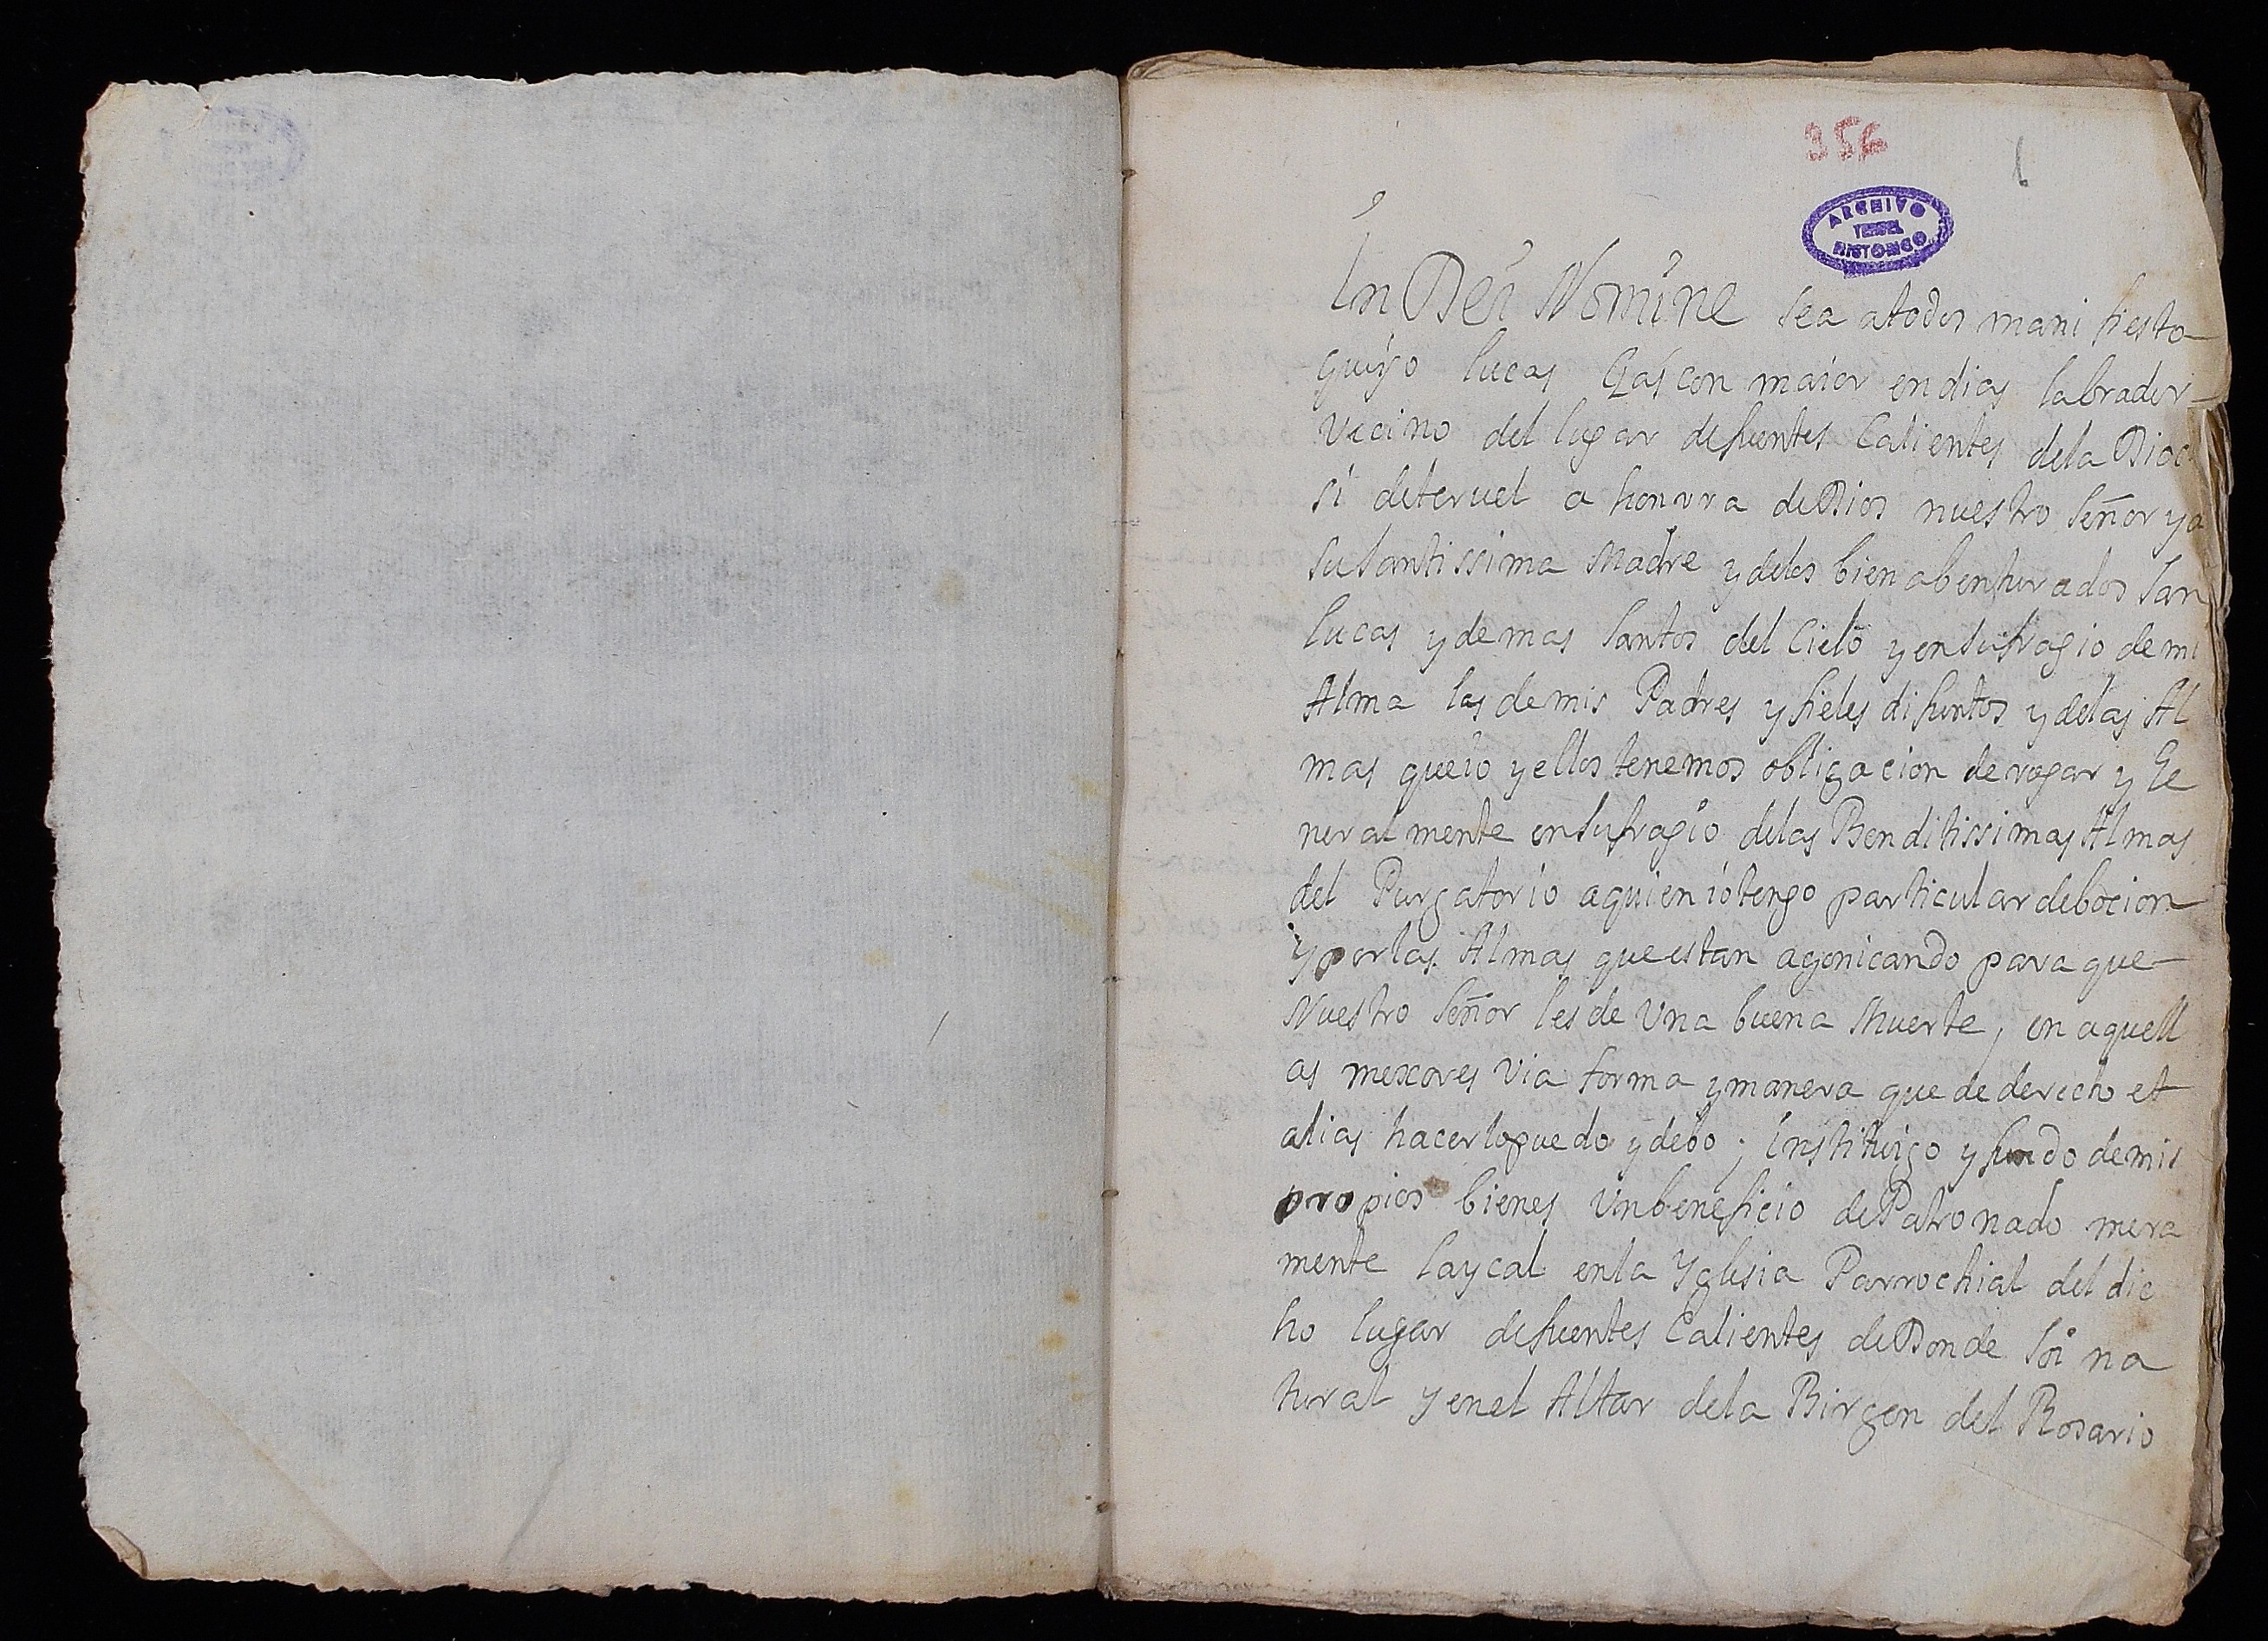 356
1
ARCHIVO
TERUEL
HISTORICO
In Dei Nomine Sea atodos mani fiesto
que yo lucas Gascon maior endias labrador
Vecino del lugar defuentes Calientes dela Dioc
si deteruel a honrra de Dios nuestro Señor ya
su santissima Madre ydelos bien abenturados San
lucas ydemas Santos del Cielo yensufragio de mi
Alma las demis Padres yfieles difuntos ydelas Al
mas queio yellos tenemos obligacion derogar y Ge
neralmente ensufragio delas Benditissimas Almas
del Purgatorio aquien iotengo particular debocion
yporlas Almas queestan agonicando para que
Nuestro Señor les de Una buena Muerte, en aquell
as mexores Via forma ymanera que de derecho et
alias hacerlopuedo ydebo; Instituigo yfundo demis
propios bienes Unbeneficio dePatronado mera
mente laycal enla Yglesia Parrochial del dic
ho lugar defuentes Calientes deDonde soi na
tural yenel Altar dela Birgen del Rosario